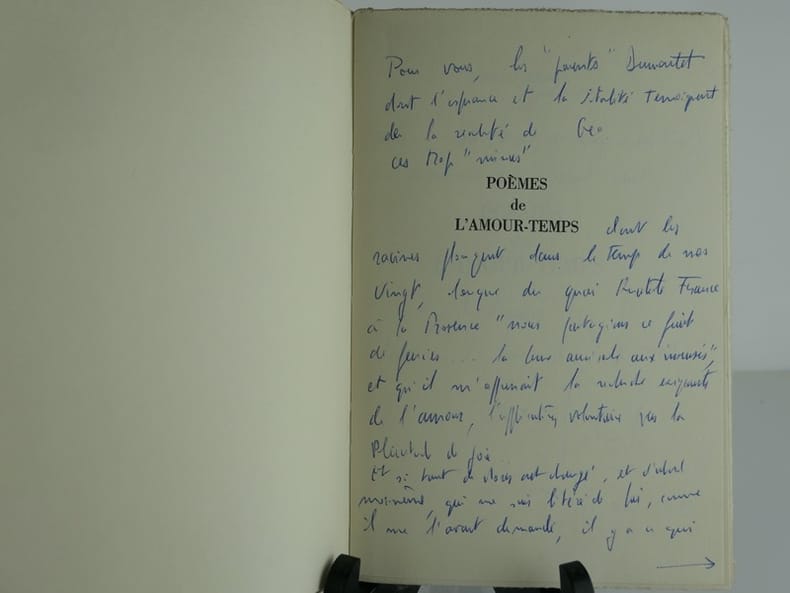 Pour vous, les "parents" Dumontet
dont l'espérance et la vitalité témoignent
de la réalité de Geo
ces trop "minces"
POÈMES
de
L'AMOUR-TEMPS
dont les
racines plongent dans le temps de nos
vingt, lorsque du quai Anatole France
à la Provence "nous partagions ce fruit
de février ... la lune amicale aux insensés",
et qu'il m'apprenait la recherche exigeante
de l'amour, volontaire vers la
plénitude de joie
Et si tant de choses ont changé, et d'abord
moi-même, qui me suis libéré de lui, comme
il me l'avait demandé, il y a ce qui